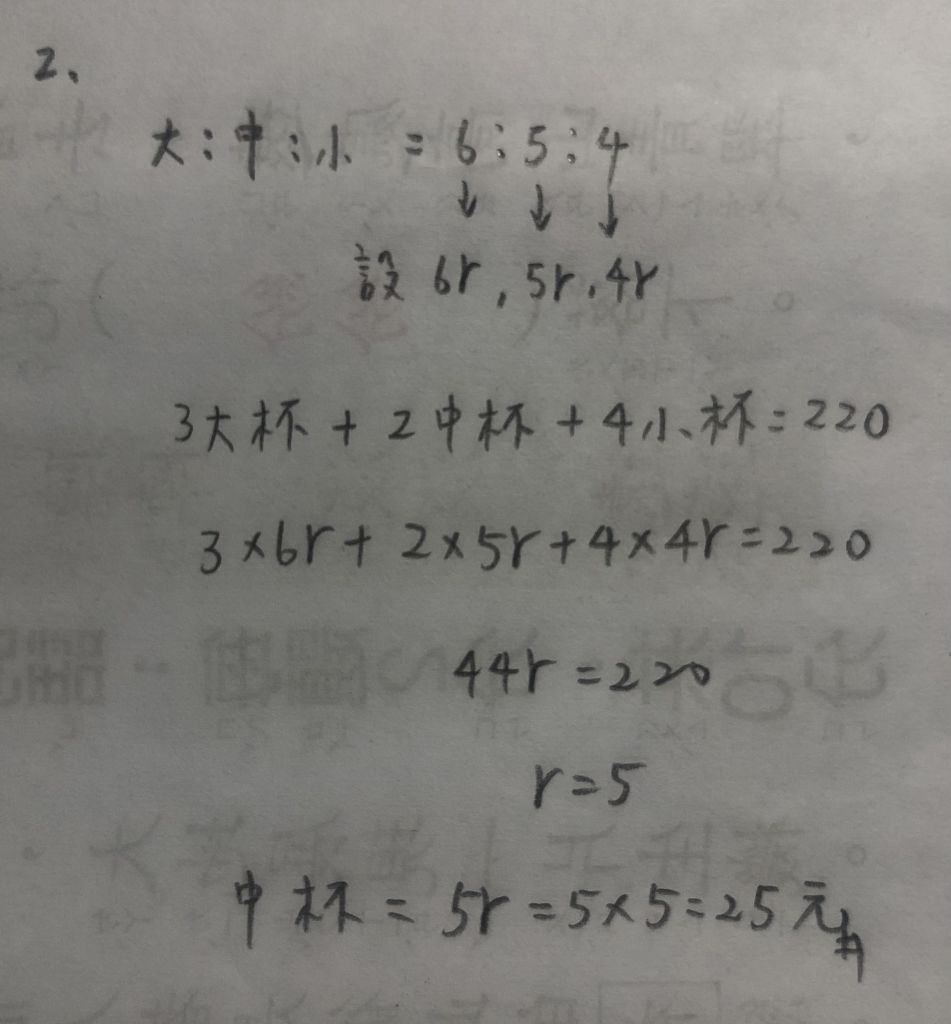 2、
大:中:小 = 6:5:4
↓ ↓ ↓
設 6r, 5r, 4r
3大杯 + 2中杯 + 4小杯 = 220
3×6r + 2×5r + 4×4r = 220
44r = 220
r = 5
中杯 = 5r = 5×5 = 25元